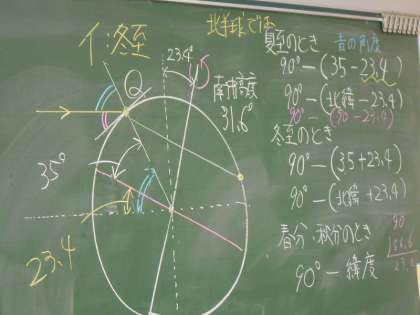 イ:冬至
地球では
Q
23.4°
南中高度
31.6°
35°
23.4
夏至のとき 青の角度
90°-(35-23.4)
90°-(北緯-23.4)
90°-(90-23.4)
冬至のとき
90°-(35+23.4)
90°-(北緯+23.4)
春分・秋分のとき
90°-緯度
90